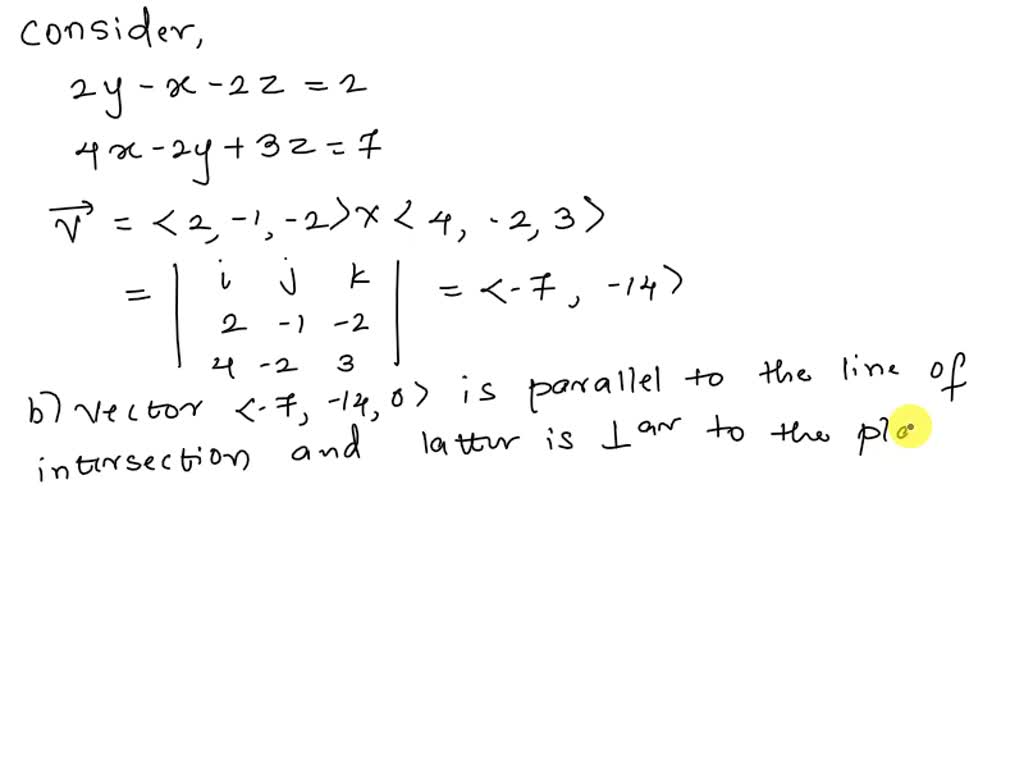 consider,
2y - x - 2z = 2
4x - 2y + 3z = 7
v⃗ = <2, -1, -2> x <4, -2, 3>
= | i j k | = <-7, -14>
2 -1 -2
4 -2 3
b) vector <-7, -14, 0> is parallel to the line of
intersection and lattur is ⊥ar to the pla